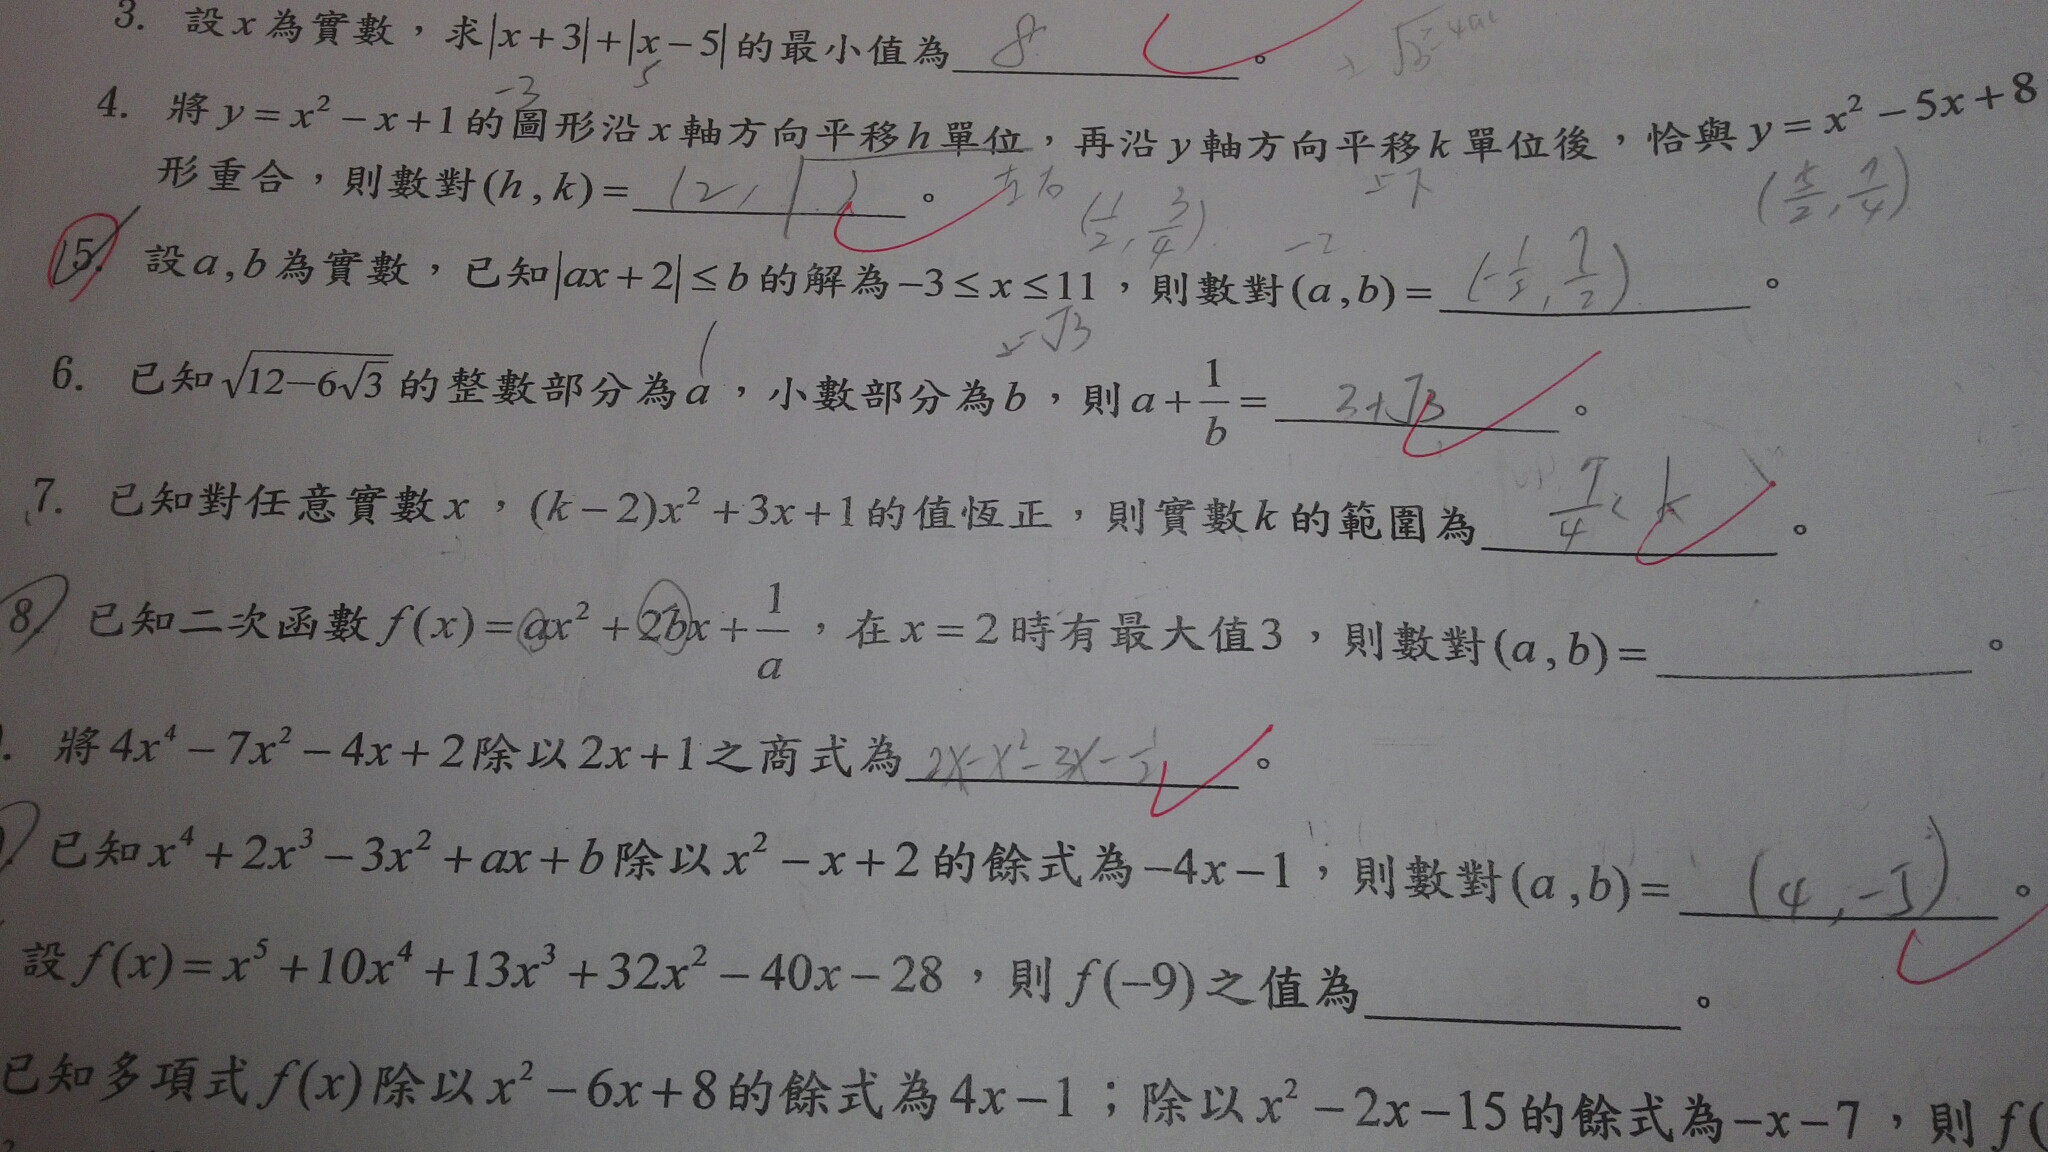 3. 設x為實數，求|x+3|+|x-5|的最小值為 8 。
-3 5
4. 將y=x²-x+1的圖形沿x軸方向平移h單位，再沿y軸方向平移k單位後，恰與y=x²-5x+8
形重合，則數對(h,k)= (2,1) 。 左右 上下
(1/2, 3/4) (5/2, 7/4)
5. 設a,b為實數，已知|ax+2|≤b的解為-3≤x≤11，則數對(a,b)= (-1/2, 7/2) 。
6. 已知√(12-6√3)的整數部分為a，小數部分為b，則a+1/b= 3+√3 。
7. 已知對任意實數x，(k-2)x²+3x+1的值恆正，則實數k的範圍為 < k 。
8. 已知二次函數f(x)=ax²+2bx+1/a，在x=2時有最大值3，則數對(a,b)= 。
. 將4x⁴-7x²-4x+2除以2x+1之商式為 2x-x²-3x-1/2 。
. 已知x⁴+2x³-3x²+ax+b除以x²-x+2的餘式為-4x-1，則數對(a,b)= (4,-5) 。
設f(x)=x⁵+10x⁴+13x³+32x²-40x-28，則f(-9)之值為 。
已知多項式f(x)除以x²-6x+8的餘式為4x-1；除以x²-2x-15的餘式為-x-7，則f(